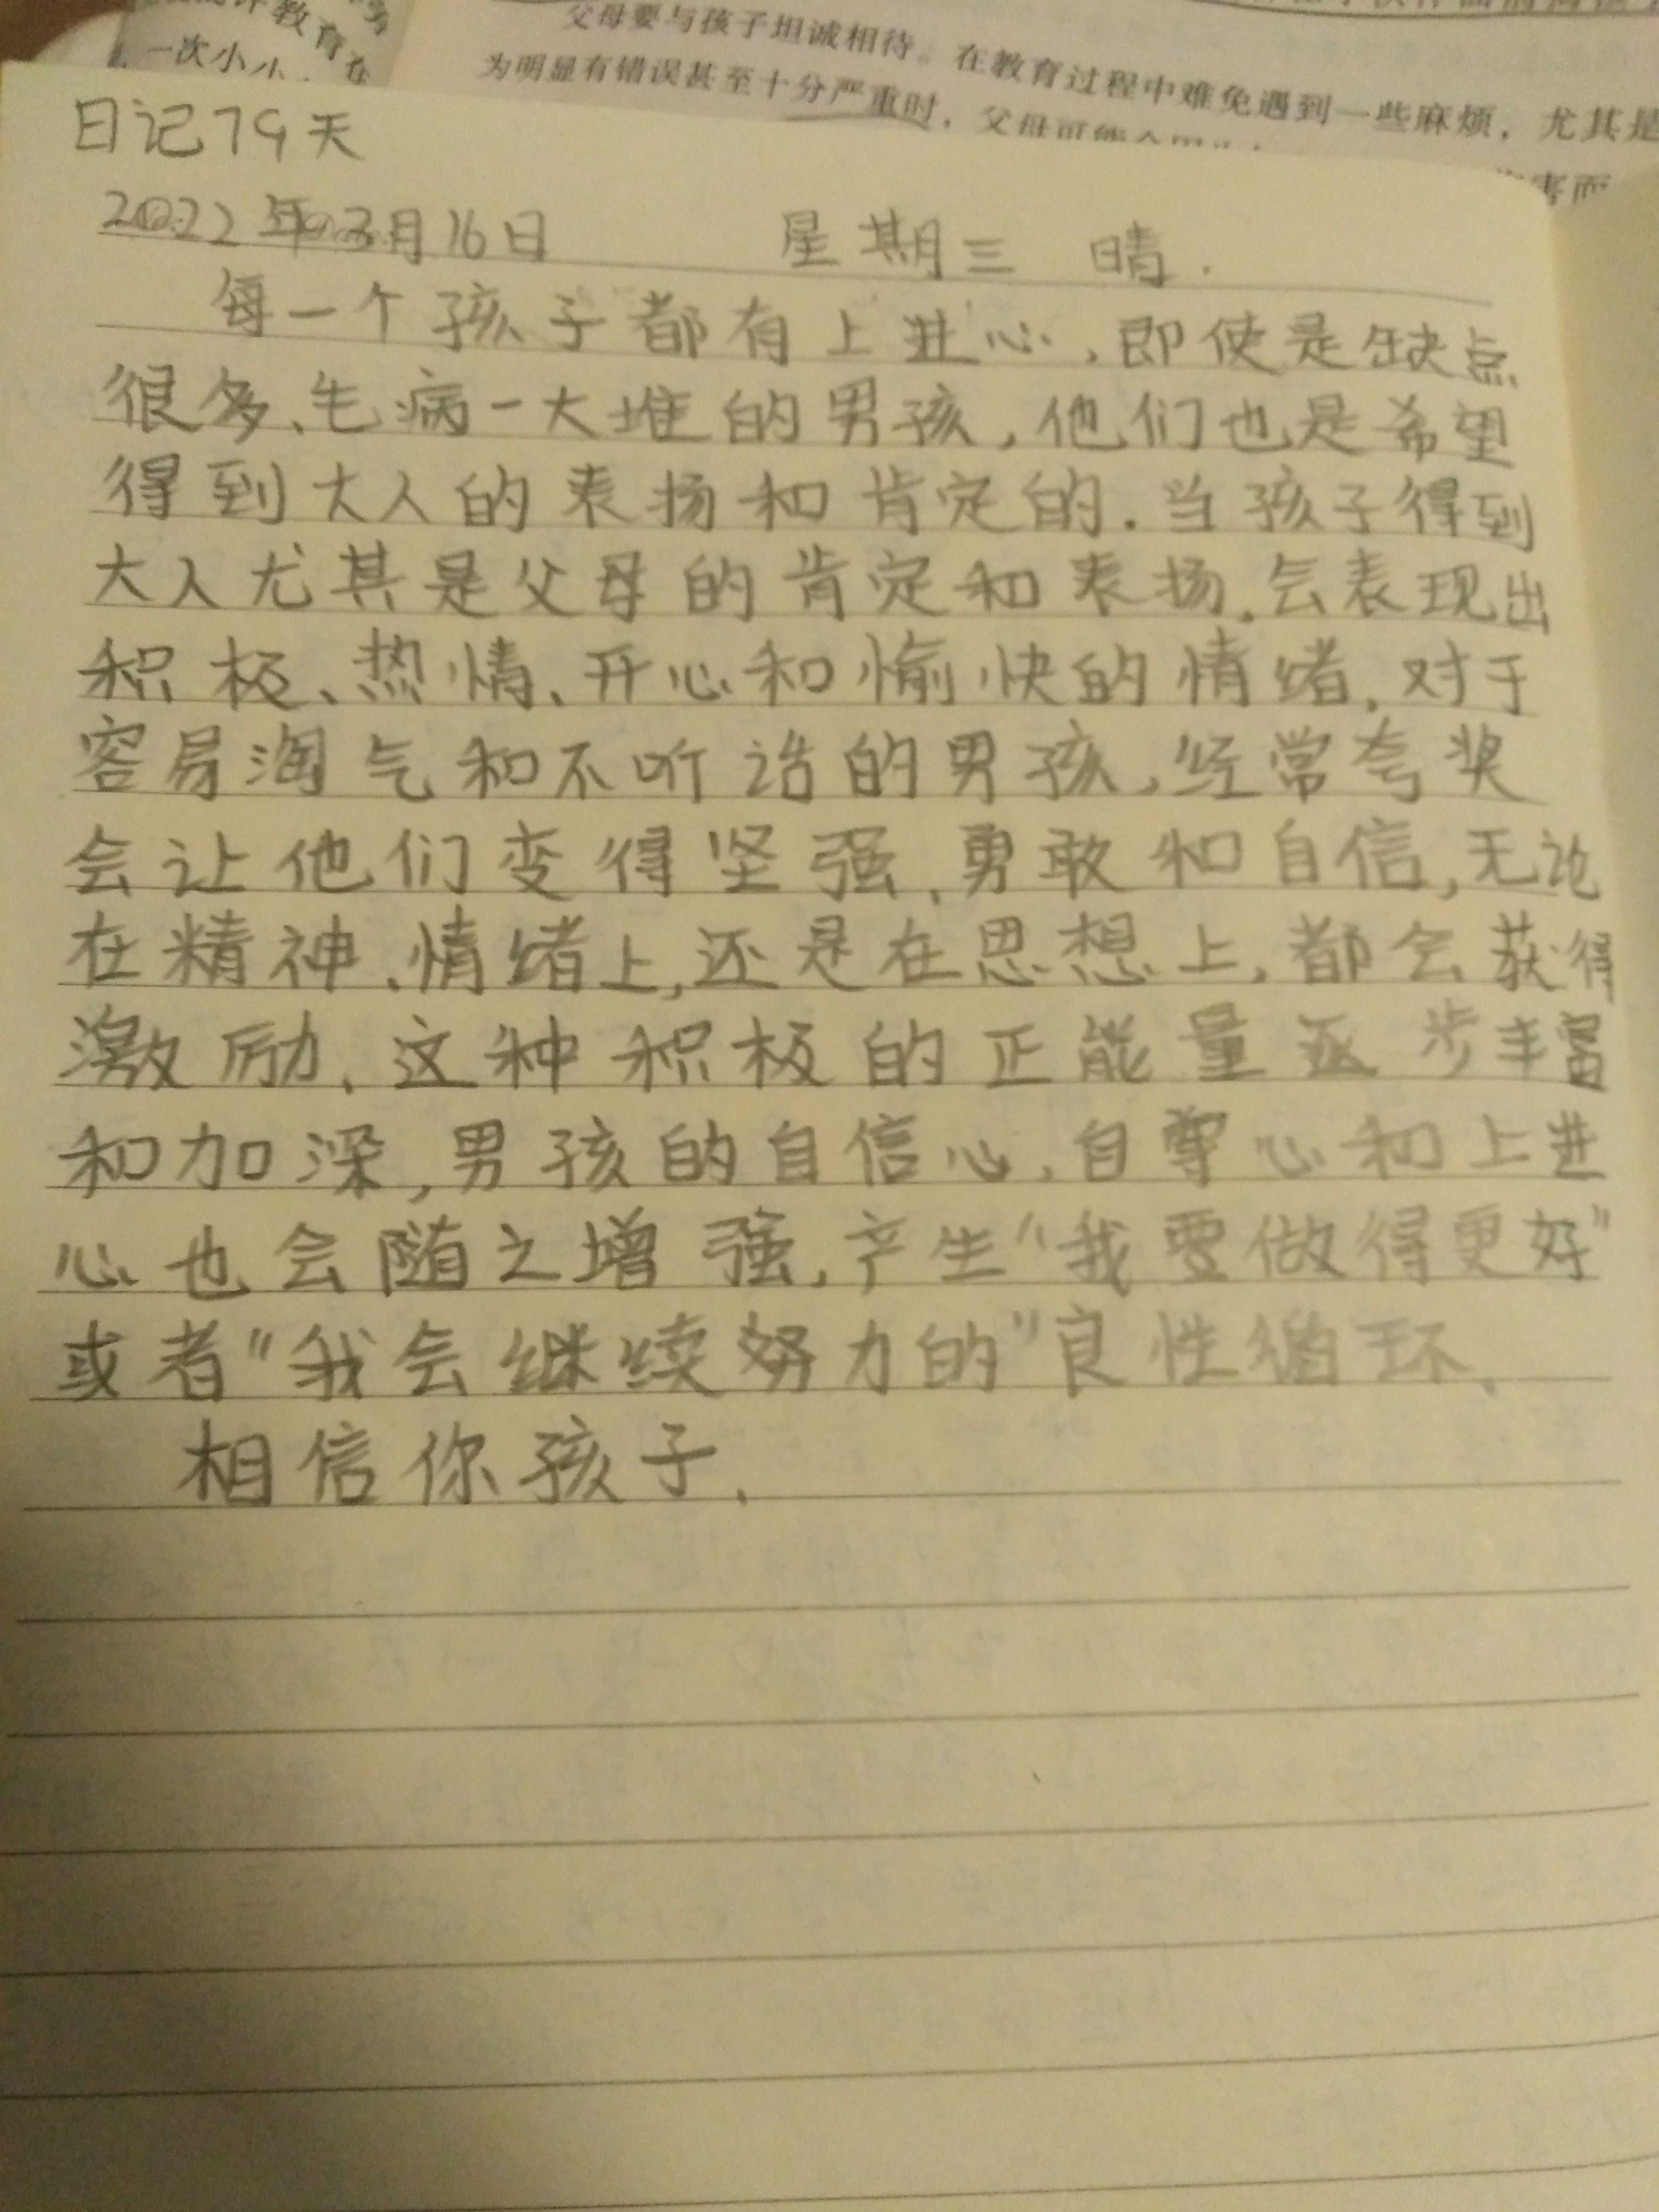 教育在
一次小小
父母要与孩子坦诚相待。在教育过程中难免遇到一些麻烦，尤其是
为明显有错误甚至十分严重时，父母可能会
害而
日记79天
2022年03月16日 星期三 晴.
每一个孩子都有上进心,即使是缺点
很多、毛病一大堆的男孩,他们也是希望
得到大人的表扬和肯定的.当孩子得到
大人尤其是父母的肯定和表扬.会表现出
积极、热情、开心和愉快的情绪,对于
容易淘气和不听话的男孩,经常夸奖
会让他们变得坚强、勇敢和自信,无论
在精神、情绪上,还是在思想上,都会获得
激励、这种积极的正能量逐步丰富
和加深,男孩的自信心,自尊心和上进
心也会随之增强,产生“我要做得更好”
或者"我会继续努力的"良性循环、
相信你孩子.